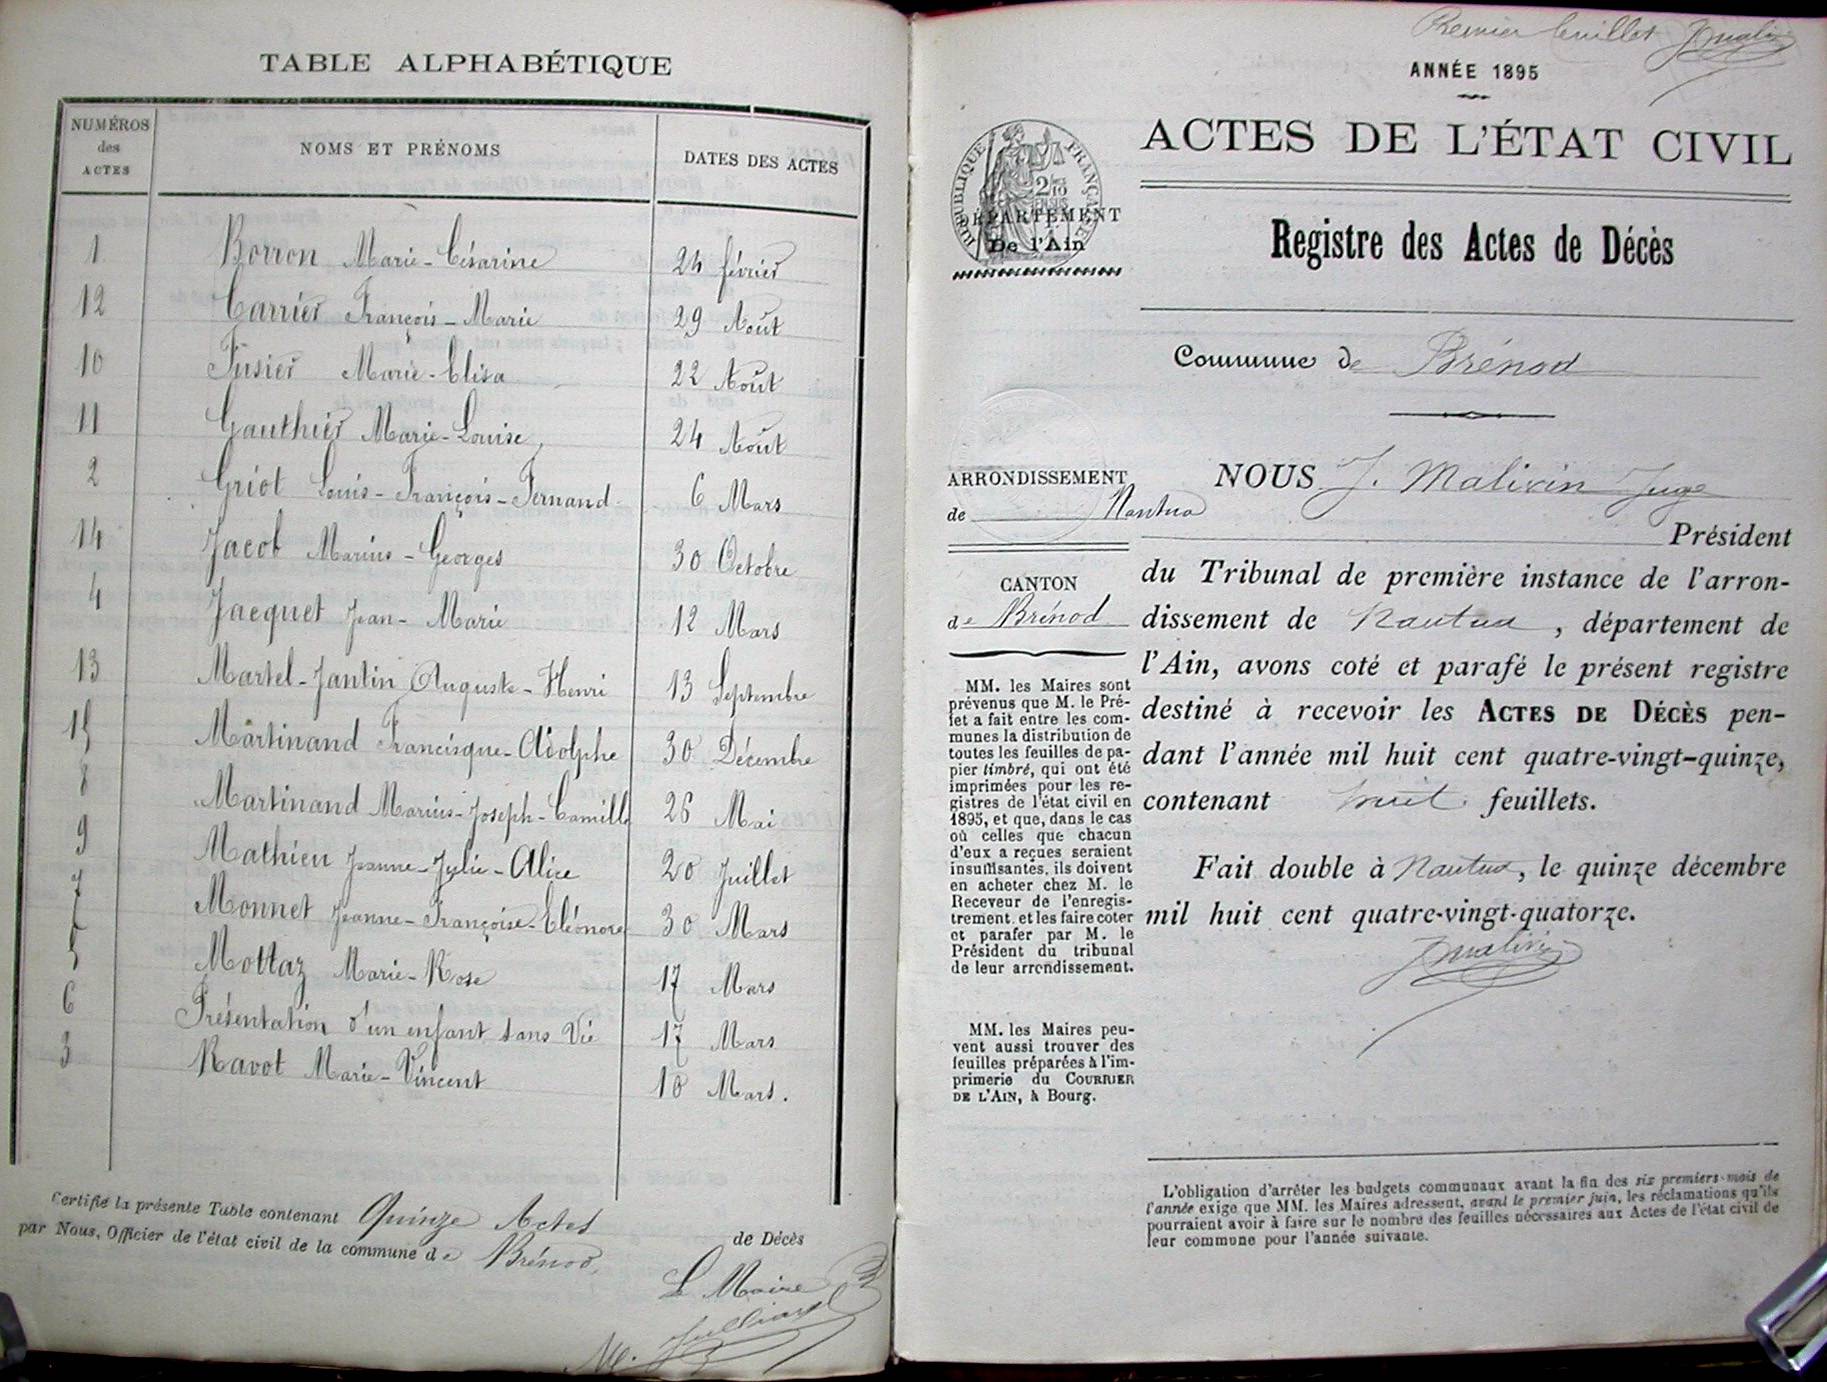 TABLE ALPHABÉTIQUE
NUMÉROS des ACTES
NOMS ET PRÉNOMS
DATES DES ACTES
1 Borron Marie-Césarine 24 février
12 Carrier François-Marie 29 Août
10 Fusier Marie-Elisa 22 Août
11 Gauthier Marie-Louise, 24 Août
2 Griot Louis-François-Fernand 6 Mars
14 Jacob Marius-Georges 30 Octobre
4 Jacquet Jean-Marie 12 Mars
13 Martel-Jantin Auguste-Henri 13 Septembre
15 Martinand Francisque-Adolphe 30 Décembre
8 Martinand Marius-Joseph-Camille 26 Mai
9 Mathieu Jeanne-Julie-Alice 20 Juillet
7 Monnet Jeanne-Françoise-Eléonore 30 Mars
5 Mottaz Marie-Rose 17 Mars
6 Présentation d'un enfant sans Vie 17 Mars
3 Ravot Marie-Vincent 10 Mars.
Certifié la présente Table contenant Quinze Actes de Décès
par Nous, Officier de l'état civil de la commune de Brénod,
Le Maire
Premier feuillet JMalivin
ANNÉE 1895
ACTES DE L'ÉTAT CIVIL
RÉPUBLIQUE FRANÇAISE
DÉPARTEMENT
De l'Ain
Registre des Actes de Décès
Commune de Brénod
ARRONDISSEMENT
de Nantua
CANTON
de Brénod
MM. les Maires sont
prévenus que M. le Pré-
fet a fait entre les com-
munes la distribution de
toutes les feuilles de pa-
pier timbré, qui ont été
imprimées pour les re-
gistres de l'état civil en
1895, et que, dans le cas
où celles que chacun
d'eux a reçues seraient
insuffisantes, ils doivent
en acheter chez M. le
Receveur de l'enregis-
trement et les faire coter
et parafer par M. le
Président du tribunal
de leur arrondissement.
MM. les Maires peu-
vent aussi trouver des
feuilles préparées à l'im-
primerie du COURRIER
DE L'AIN, à Bourg.
NOUS J. Malivin Juge
Président
du Tribunal de première instance de l'arron-
dissement de Nantua, département de
l'Ain, avons coté et parafé le présent registre
destiné à recevoir les ACTES DE DÉCÈS pen-
dant l'année mil huit cent quatre-vingt-quinze,
contenant huit feuillets.
Fait double à Nantua, le quinze décembre
mil huit cent quatre-vingt-quatorze.
JMalivin
L'obligation d'arrêter les budgets communaux avant la fin des six premiers mois de
l'année exige que MM. les Maires adressent, avant le premier juin, les réclamations qu'ils
pourraient avoir à faire sur le nombre des feuilles nécessaires aux Actes de l'état civil de
leur commune pour l'année suivante.